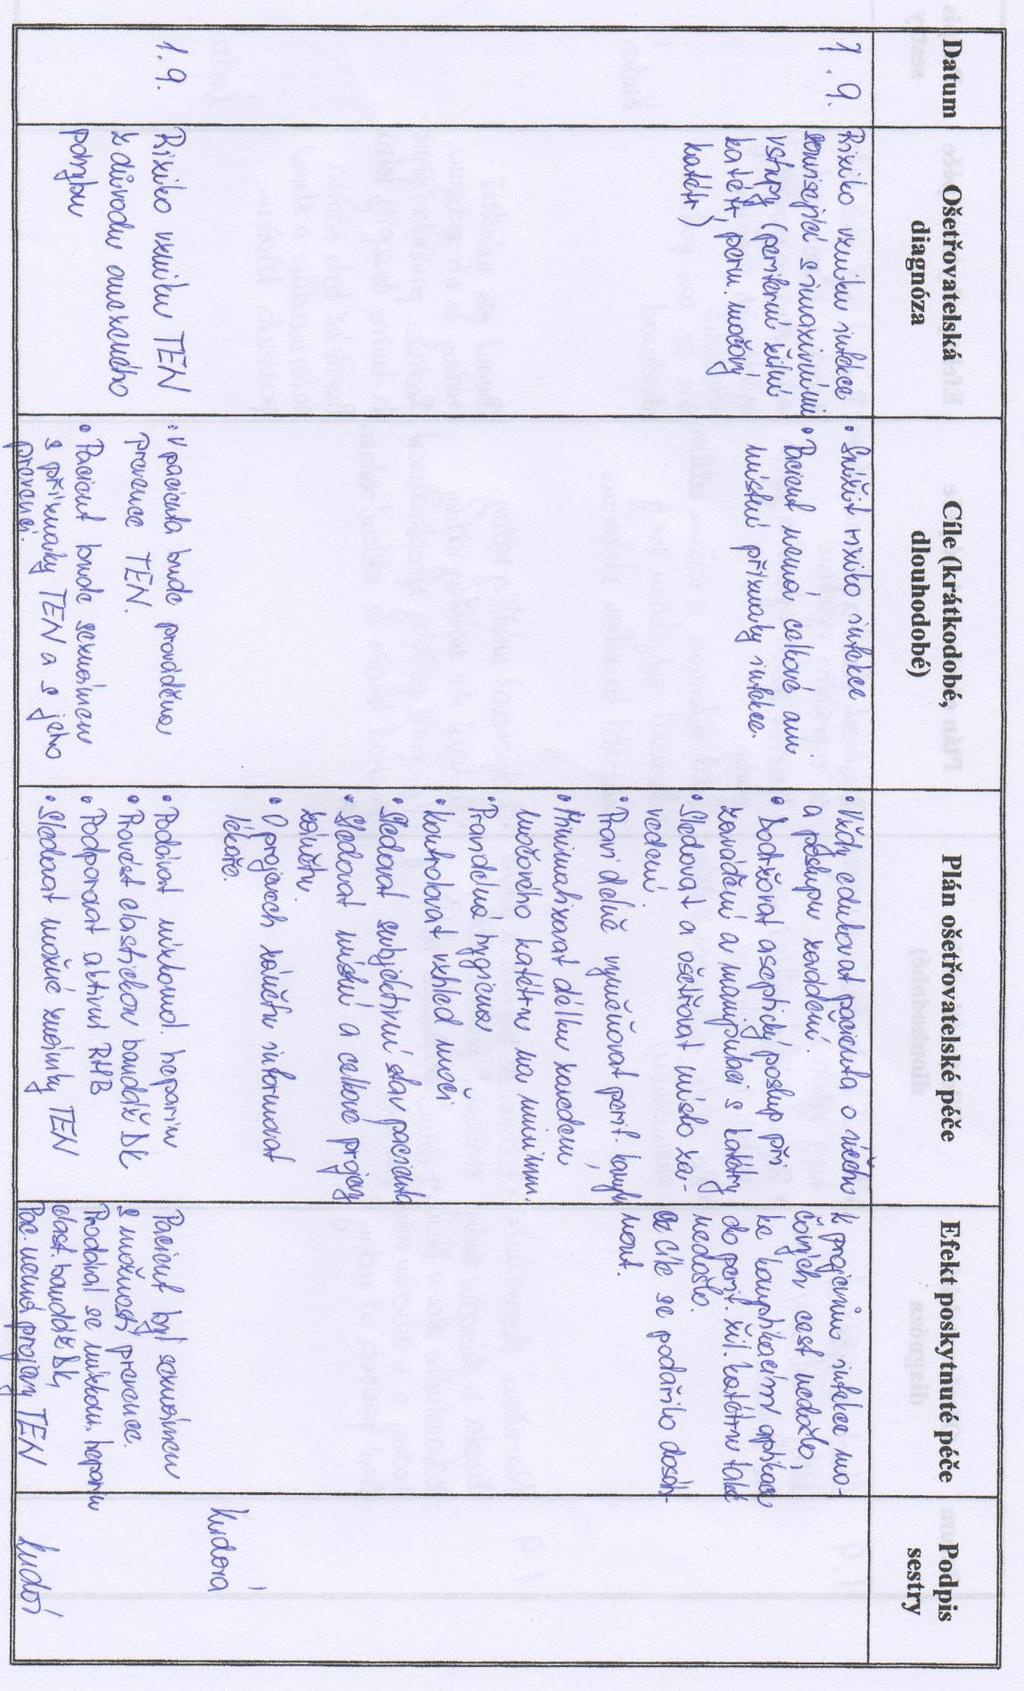 Datum
Ošetřovatelská
diagnóza
Cíle (krátkodobé,
dlouhodobé)
Plán ošetřovatelské péče
Efekt poskytnuté péče
Podpis
sestry
1.9.
Riziko vzniku infekce
související s invazivními
vstupy (periferní žilní
katétr, perm. močový
katétr)
• Snížit riziko infekce
• Pacient nemá celkové ani
místní příznaky infekce.
• Vždy edukovat pacienta o všem
a postupu zavádění.
• Dodržovat aseptický postup při
zavádění a manipulaci s katétry
• Sledovat a ošetřovat místo za-
vedení
• Pravidelně vyměňovat perif. kanylu
• Minimalizovat délku zavedení
močového katétru na minimum.
• Pravidelná hygiena
• Kontrolovat vzhled moči
• Sledovat subjektivní stav pacienta
• Sledovat místní a celkové projevy
zánětu.
• O projevech zánětu informovat
lékaře.
K projevům infekce mo-
čových cest nedošlo,
ke komplikacím aplikace
do perif. žil. katétru také
nedošlo.
Cíle se podařilo dosáh-
nout.
1.9.
Riziko vzniku TEN
z důvodu omezeného
pohybu
• U pacienta bude prováděna
prevence TEN.
• Pacient bude seznámen
s příznaky TEN a s jeho
prevencí.
• Podávat nízkomol. heparin
• Provést elastickou bandáž DK
• Podporovat aktivní RHB
• Sledovat možné známky TEN
Pacient byl seznámen
s možností prevence.
Prodával se nízkom. heparin
elast. bandáž DK,
Pac. nemá projevy TEN